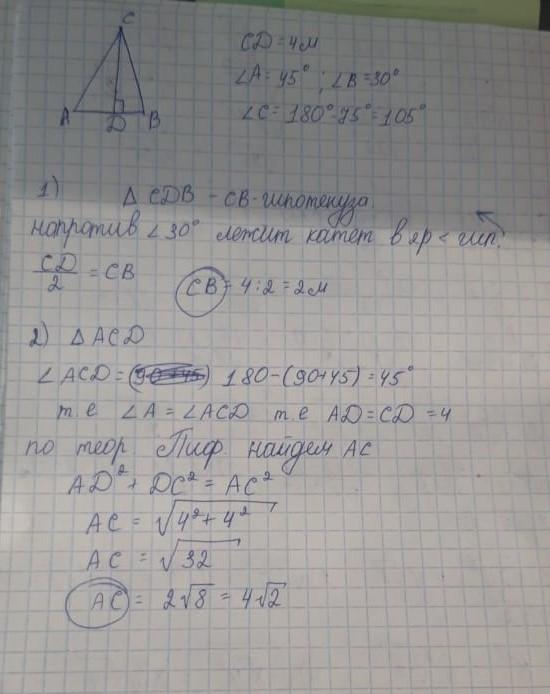 C
A D B
CD = 4м
∠A = 45° ; ∠B = 30°
∠C = 180° - 75° = 105°
1) Δ CDB - CB - гипотенуза.
напротив ∠30° лежит катет в 2р < гип.
CD/2 = CB CB = 4 : 2 = 2м
2) Δ ACD
∠ACD = 180 - (90 + 45) = 45°
т.е ∠A = ∠ACD т.е AD = CD = 4
по теор. Пиф. найдем AC
AD² + DC² = AC²
AC = √4² + 4²
AC = √32
AC = 2√8 = 4√2